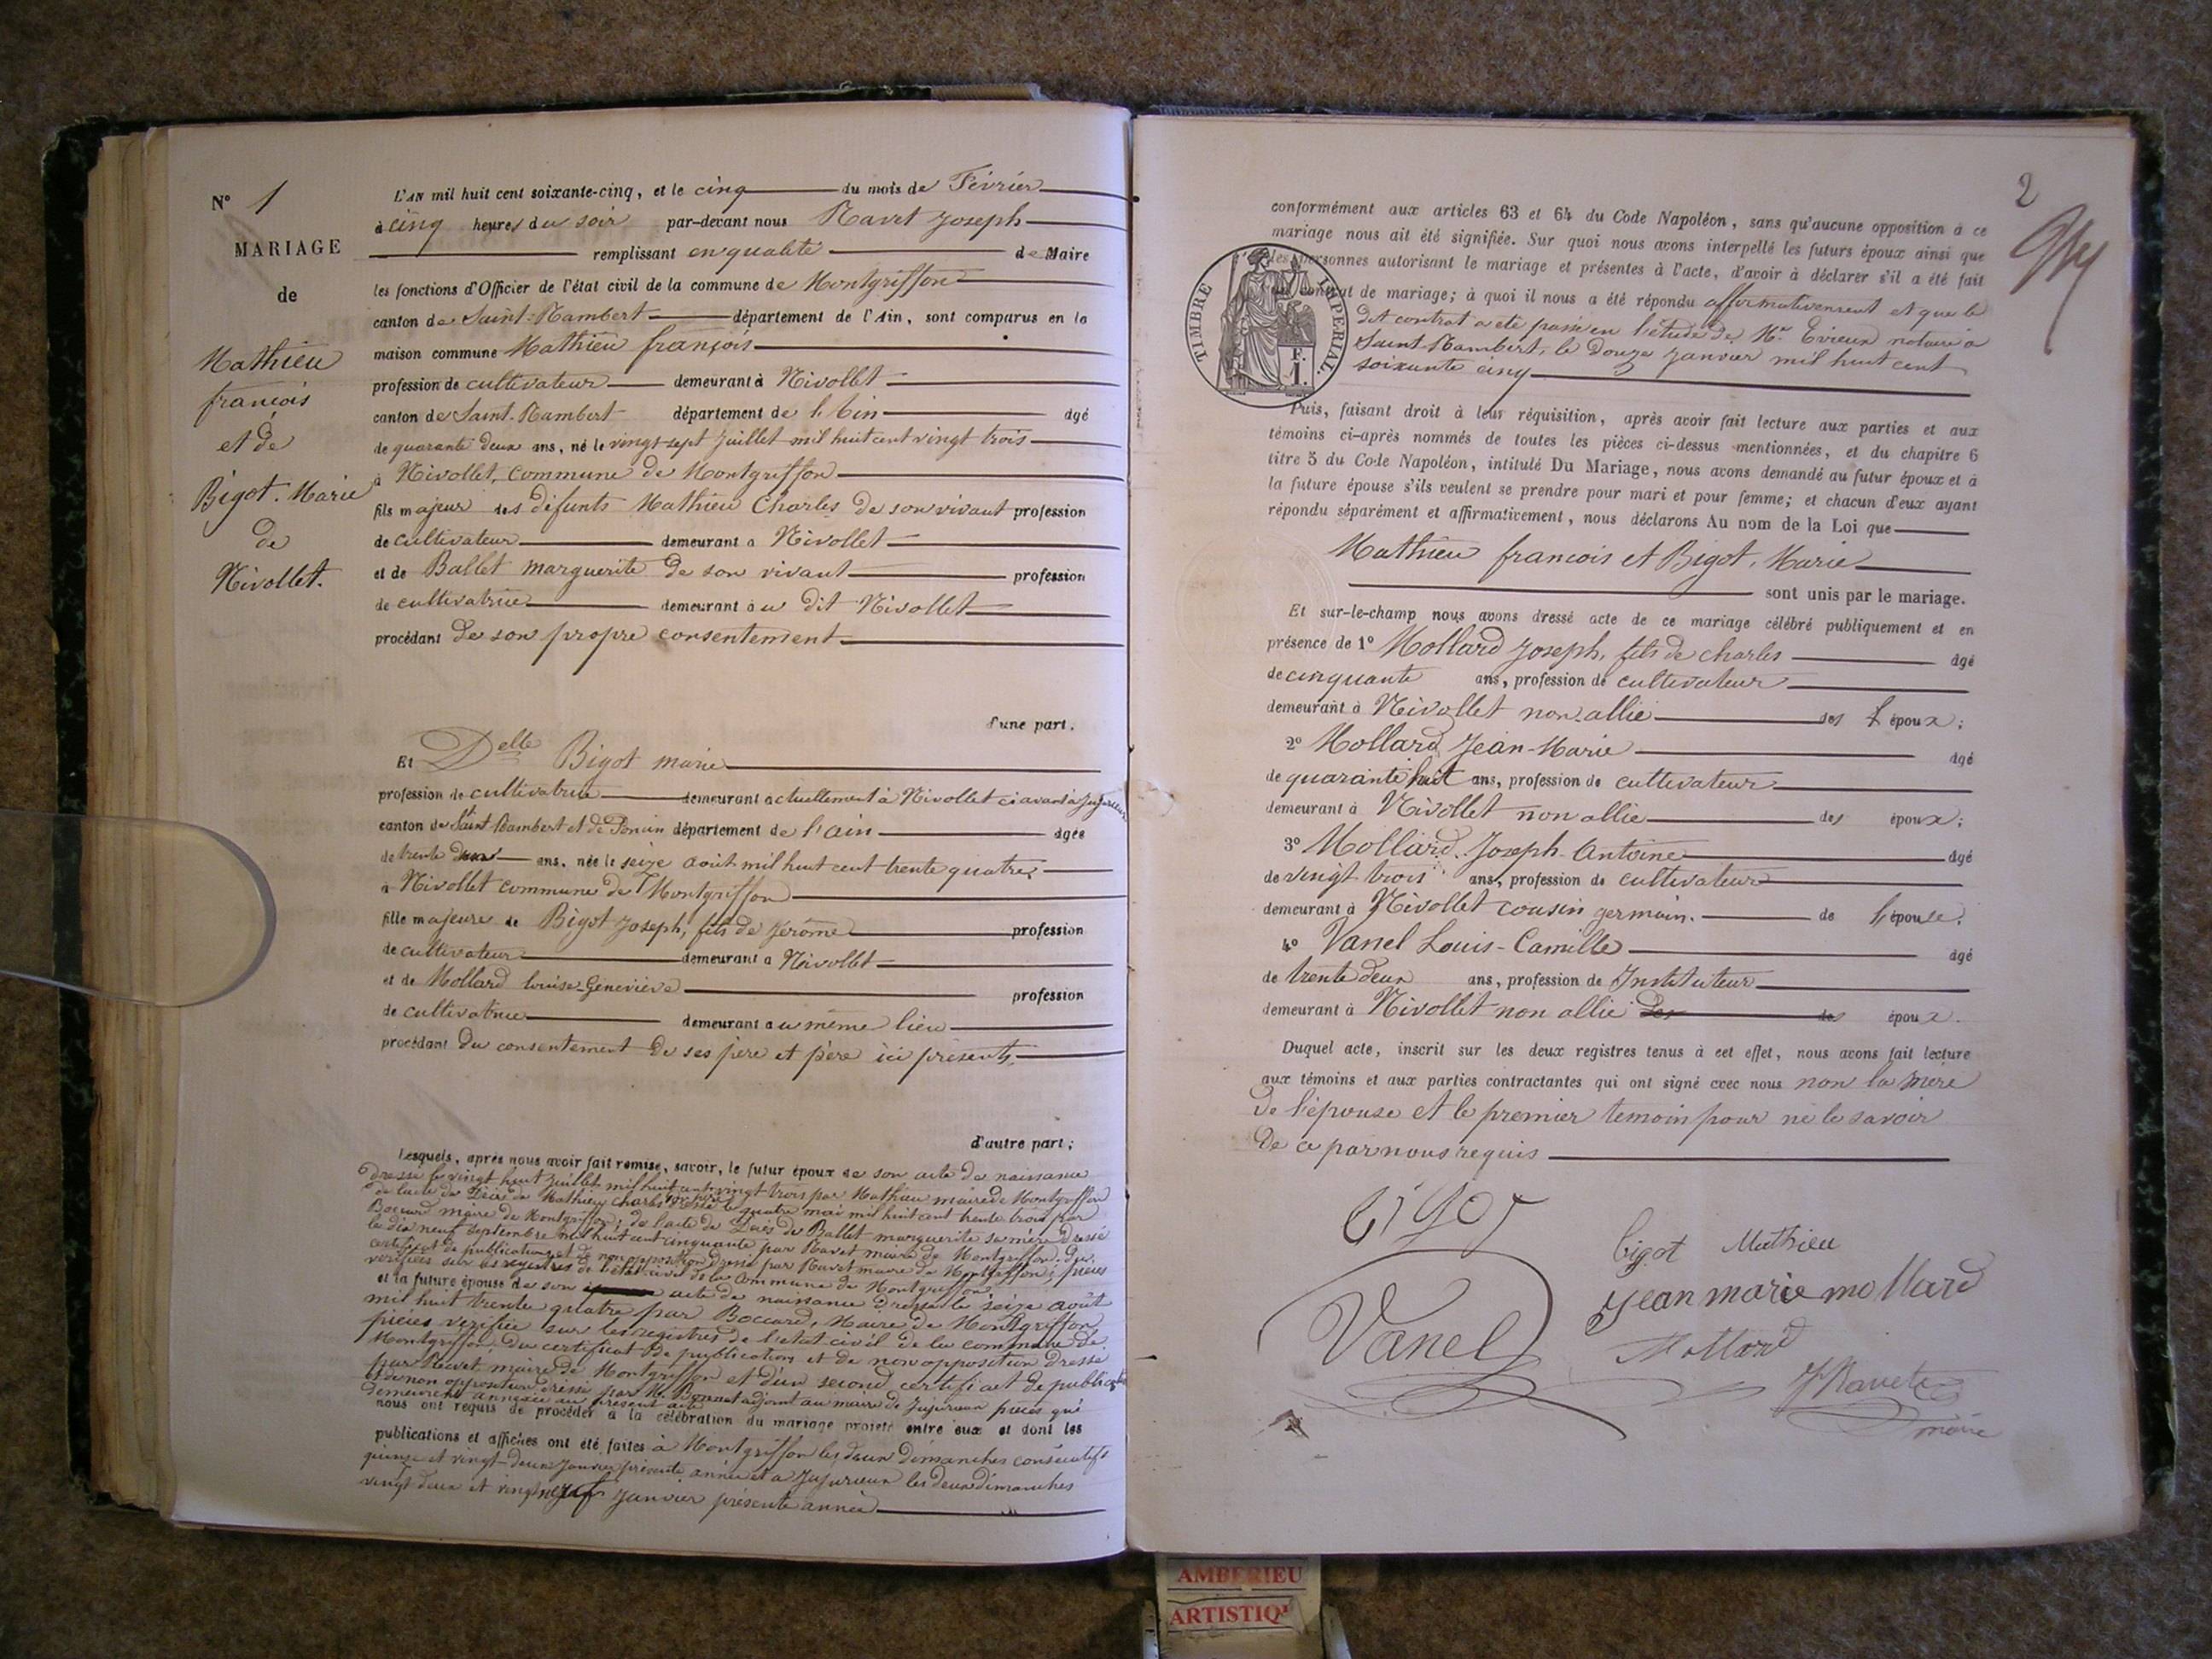 N° 1
MARIAGE
de
Mathieu
francois
et de
Bigot. Marie
de
Nivollet.
L'AN mil huit cent soixante-cinq, et le cinq du mois de Février
à cinq heures du soir par-devant nous Ravet Joseph
remplissant en qualité de Maire
les fonctions d'Officier de l'état civil de la commune de Montgriffon
canton de Saint-Rambert département de l'Ain, sont comparus en la
maison commune Mathieu françois
profession de cultivateur demeurant à Nivollet
canton de Saint-Rambert département de l'Ain âgé
de quarante deux ans, né le vingt sept Juillet mil huit cent vingt trois
à Nivollet, commune de Montgriffon
fils majeur des défunts Mathieu Charles de son vivant profession
de cultivateur demeurant à Nivollet
et de Ballet marguerite de son vivant profession
de cultivatrice demeurant au dit Nivollet
procédant de son propre consentement
d'une part.
Et Delle Bigot marie
profession de cultivatrice demeurant actuellement à Nivollet ci avant à Jujurieux
canton de Saint Rambert et de Poncin département de l'ain âgée
de trente deux ans, née le seize août mil huit cent trente quatre,
à Nivollet commune de Montgriffon
fille majeure de Bigot Joseph, fils de Jérôme profession
de cultivateur demeurant à Nivollet
et de Mollard louise-Geneviève profession
de cultivatrice demeurant au même lieu
procédant du consentement de ses père et père ici présents,
d'autre part;
Lesquels, après nous avoir fait remise, savoir, le futur époux de son acte de naissance
dressé le vingt huit Juillet mil huit cent vingt trois par Mathieu maire de Montgriffon
de l'acte de Décès de Mathieu Charles son père dressé le quatre mai mil huit cent trente trois par
Boccard maire de Montgriffon; de l'acte de Décès de Ballet marguerite sa mère dressé
le dix neuf septembre mil huit cent cinquante par Ravet maire de Montgriffon; du
certificat de publication et de non opposition dressé par Ravet maire de Montgriffon; pièces
vérifiées sur les registres de l'état civil de la commune de Montgriffon
et la future épouse de son acte de naissance dressé le seize août
mil huit trente quatre par Boccard, Maire de Montgriffon
pièces vérifiée sur les registres de l'état civil de la commune de
Montgriffon, du certificat de publication et de non opposition dressé
par Ravet maire de Montgriffon et d'un second certificat de publication
et de non opposition dressé par M. Bonnet adjoint au maire de Jujurieux pièces qui
demeurent annexée au présent acte
nous ont requis de procéder à la célébration du mariage projeté entre eux et dont les
publications et affiches ont été faites à Montgriffon les deux dimanches consécutifs
quinze et vingt-deux Janvier présente année et à Jujurieux les deux dimanches
vingt deux et vingt neuf Janvier présente année
2
conformément aux articles 63 et 64 du Code Napoléon, sans qu'aucune opposition à ce
mariage nous ait été signifiée. Sur quoi nous avons interpellé les futurs époux ainsi que
les personnes autorisant le mariage et présentes à l'acte, d'avoir à déclarer s'il a été fait
un contrat de mariage; à quoi il nous a été répondu affirmativement et que le
dit contrat a été passé en l'étude de Me. Evieux notaire à
Saint-Rambert, le Douze Janvier mil huit cent
soixante cinq
TIMBRE IMPERIAL.
F.
I.
Puis, faisant droit à leur réquisition, après avoir fait lecture aux parties et aux
témoins ci-après nommés de toutes les pièces ci-dessus mentionnées, et du chapitre 6
titre 5 du Code Napoléon, intitulé Du Mariage, nous avons demandé au futur époux et à
la future épouse s'ils veulent se prendre pour mari et pour femme; et chacun d'eux ayant
répondu séparément et affirmativement, nous déclarons Au nom de la Loi que
Mathieu francois et Bigot, Marie
sont unis par le mariage.
Et sur-le-champ nous avons dressé acte de ce mariage célébré publiquement et en
présence de 1° Mollard Joseph, fils de charles âgé
de cinquante ans, profession de cultivateur
demeurant à Nivollet non allié des époux;
2° Mollard Jean-Marie âgé
de quarante huit ans, profession de cultivateur
demeurant à Nivollet non allié des époux;
3° Mollard. Joseph-Antoine âgé
de vingt trois ans, profession de cultivateur
demeurant à Nivollet cousin germain. de l'épouse.
4° Vanel Louis-Camille âgé
de trente deux ans, profession de Instituteur
demeurant à Nivollet non allié des époux.
Duquel acte, inscrit sur les deux registres tenus à cet effet, nous avons fait lecture
aux témoins et aux parties contractantes qui ont signé avec nous non la mère
de l'épouse et le premier témoin pour ne le savoir
de ce par nous requis
bigot Mathieu
Vanel
jean marie mollard
Mollard
J Ravet
maire
AMBERIEU
ARTISTIQ